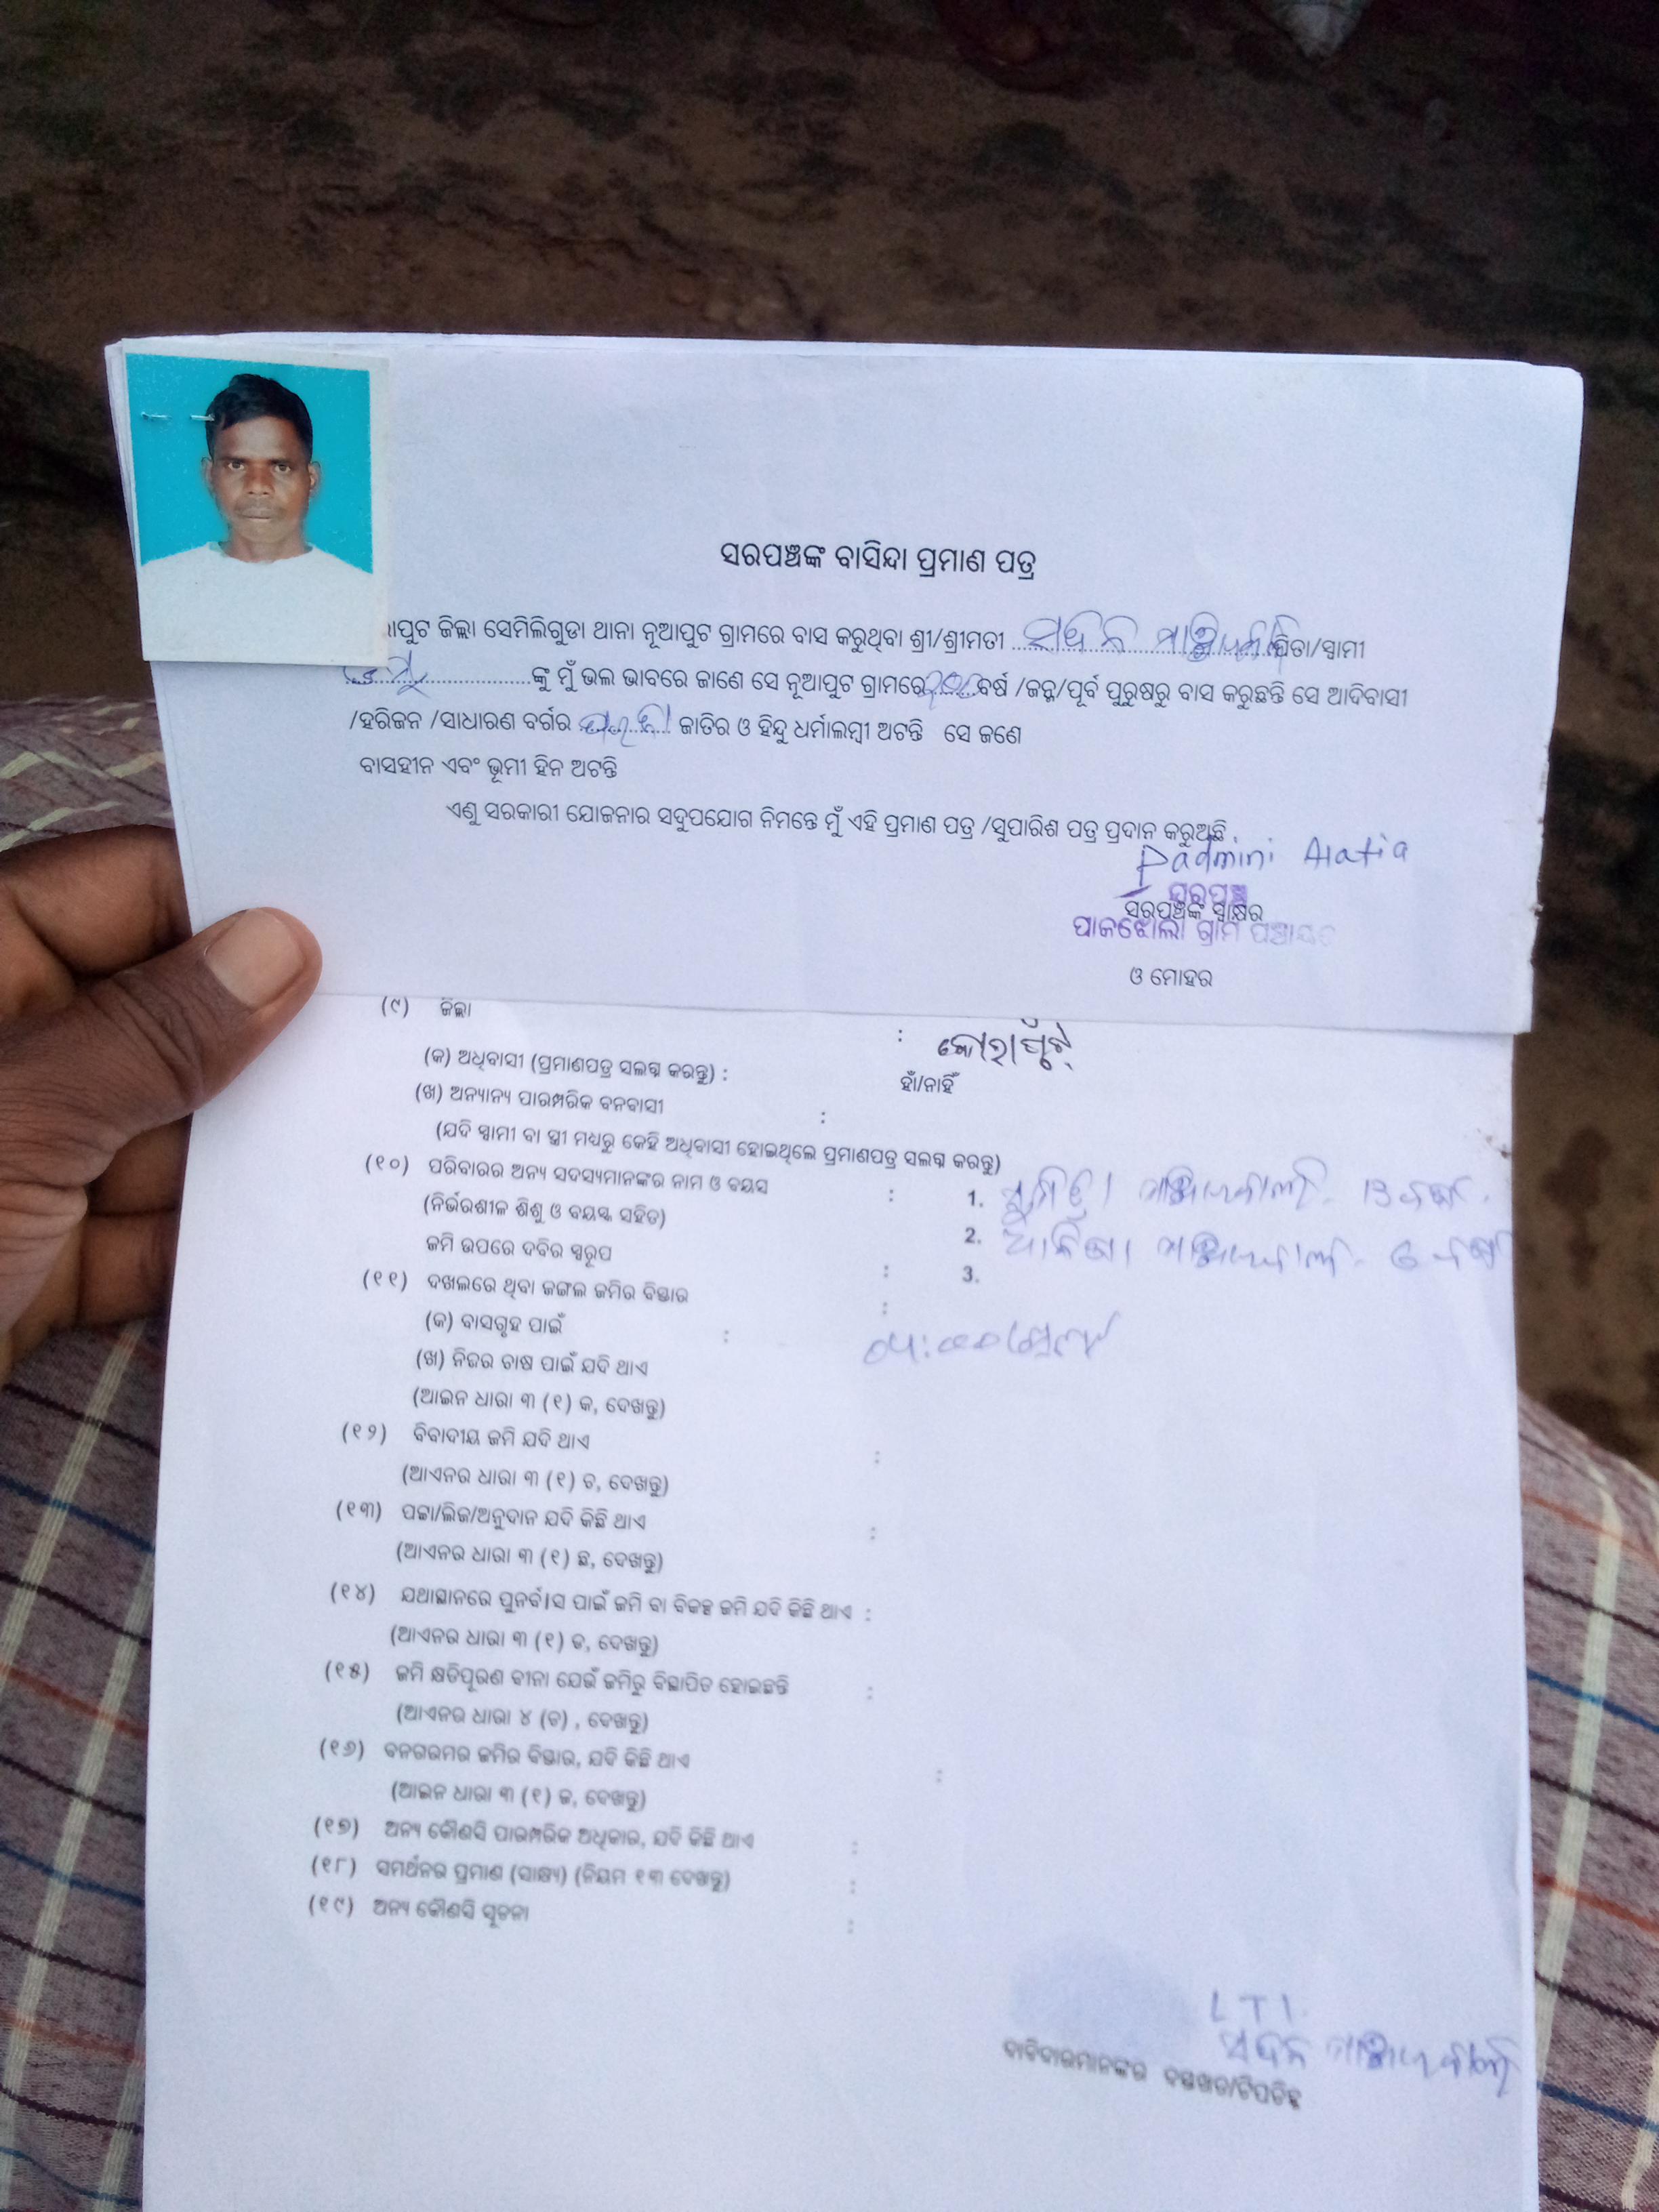 ସରପଞ୍ଚଙ୍କ ବାସିନ୍ଦା ପ୍ରମାଣ ପତ୍ର
ାପୁଟ ଜିଲ୍ଲା ସେମିଲିଗୁଡା ଥାନା ନୂଆପୁଟ ଗ୍ରାମରେ ବାସ କରୁଥିବା ଶ୍ରୀ/ଶ୍ରୀମତୀ ପିତା/ସ୍ୱାମୀ
ଙ୍କୁ ମୁଁ ଭଲ ଭାବରେ ଜାଣେ ସେ ନୂଆପୁଟ ଗ୍ରାମରେ ବର୍ଷ /ଜନ୍ମ/ପୂର୍ବ ପୁରୁଷରୁ ବାସ କରୁଛନ୍ତି ସେ ଆଦିବାସୀ
/ହରିଜନ /ସାଧାରଣ ବର୍ଗର ଜାତିର ଓ ହିନ୍ଦୁ ଧର୍ମାଲମ୍ବୀ ଅଟନ୍ତି ସେ ଜଣେ
ବାସହୀନ ଏବଂ ଭୂମୀ ହିନ ଅଟନ୍ତି
ଏଣୁ ସରକାରୀ ଯୋଜନାର ସଦୁପଯୋଗ ନିମନ୍ତେ ମୁଁ ଏହି ପ୍ରମାଣ ପତ୍ର /ସୁପାରିଶ ପତ୍ର ପ୍ରଦାନ କରୁଅଛି .
Padmini
ସରପଞ୍ଚ
ସରପଞ୍ଚଙ୍କ ସ୍ୱାକ୍ଷର
ପାକଝୋଲା ଗ୍ରାମ ପଞ୍ଚାୟତ
ଓ ମୋହର
(୯) ଜିଲ୍ଲା : କୋରାପୁଟ୍
(କ) ଅଧିବାସୀ (ପ୍ରମାଣପତ୍ର ସଲଗ୍ନ କରନ୍ତୁ) : ହଁ/ନାହିଁ
(ଖ) ଅନ୍ୟାନ୍ୟ ପାରମ୍ପରିକ ବନବାସୀ :
(ଯଦି ସ୍ୱାମୀ ବା ସ୍ତ୍ରୀ ମଧ୍ୟରୁ କେହି ଅଧିବାସୀ ହୋଇଥିଲେ ପ୍ରମାଣପତ୍ର ସଲଗ୍ନ କରନ୍ତୁ)
(୧୦) ପରିବାରର ଅନ୍ୟ ସଦସ୍ୟମାନଙ୍କର ନାମ ଓ ବୟସ : 1. 13 ବର୍ଷ.
(ନିର୍ଭରଶୀଳ ଶିଶୁ ଓ ବୟସ୍କ ସହିତ) 2.
ଜମି ଉପରେ ଦବିର ସ୍ୱରୂପ : 3.
(୧୧) ଦଖଲରେ ଥିବା ଜଙ୍ଗଲ ଜମିର ବିସ୍ତାର :
(କ) ବାସଗୃହ ପାଇଁ :
(ଖ) ନିଜର ଚାଷ ପାଇଁ ଯଦି ଥାଏ
(ଆଇନ ଧାରା ୩ (୧) କ, ଦେଖନ୍ତୁ)
(୧୨) ବିବାଦୀୟ ଜମି ଯଦି ଥାଏ :
(ଆଏନର ଧାରା ୩ (୧) ଚ, ଦେଖନ୍ତୁ)
(୧୩) ପଟ୍ଟା/ଲିଜ/ଅନୁଦାନ ଯଦି କିଛି ଥାଏ :
(ଆଏନର ଧାରା ୩ (୧) ଛ, ଦେଖନ୍ତୁ)
(୧୪) ଯଥାସ୍ଥାନରେ ପୁନର୍ବାସ ପାଇଁ ଜମି ବା ବିକଳ୍ପ ଜମି ଯଦି କିଛି ଥାଏ :
(ଆଏନର ଧାରା ୩ (୧) ଡ, ଦେଖନ୍ତୁ)
(୧୫) ଜମି କ୍ଷତିପୂରଣ ବୀନା ଯେଉଁ ଜମିରୁ ବିସ୍ଥାପିତ ହୋଇଛନ୍ତି :
(ଆଏନର ଧାରା ୪ (ଡ) , ଦେଖନ୍ତୁ)
(୧୬) ବନଗରାମର ଜମିର ବିସ୍ତାର, ଯଦି କିଛି ଥାଏ :
(ଆଇନ ଧାରା ୩ (୧) ଜ, ଦେଖନ୍ତୁ)
(୧୭) ଅନ୍ୟ କୌଣସି ପାରମ୍ପରିକ ଅଧିକାର, ଯଦି କିଛି ଥାଏ :
(୧୮) ସମର୍ଥନର ପ୍ରମାଣ (ସାକ୍ଷ୍ୟ) (ନିୟମ ୧୩ ଦେଖନ୍ତୁ) :
(୧୯) ଅନ୍ୟ କୌଣସି ସୂଚନା :
LTI.
ଦାବିଦାରମାନଙ୍କର ଦସ୍ତଖତ/ଟିପଚିହ୍ନ